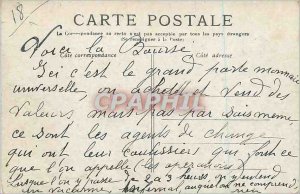 18-
CARTE POSTALE
La Correspondance au verso n'est pas acceptée par tous les pays étrangers
(Se renseigner à la Poste)
Voici la Bourse
Côté correspondance Côté adresse
Ici c'est le grand porte monnaie
universelle, on achète et vend des
valeurs, mais pas par soi même
ce sont les agents de change
qui ont leur coulissiers qui font ce
que l'on appelle les opérations
lorsque l'on passe 3 heures, y entend
infernal, auquel on ne comprend
CPARAMA.COM